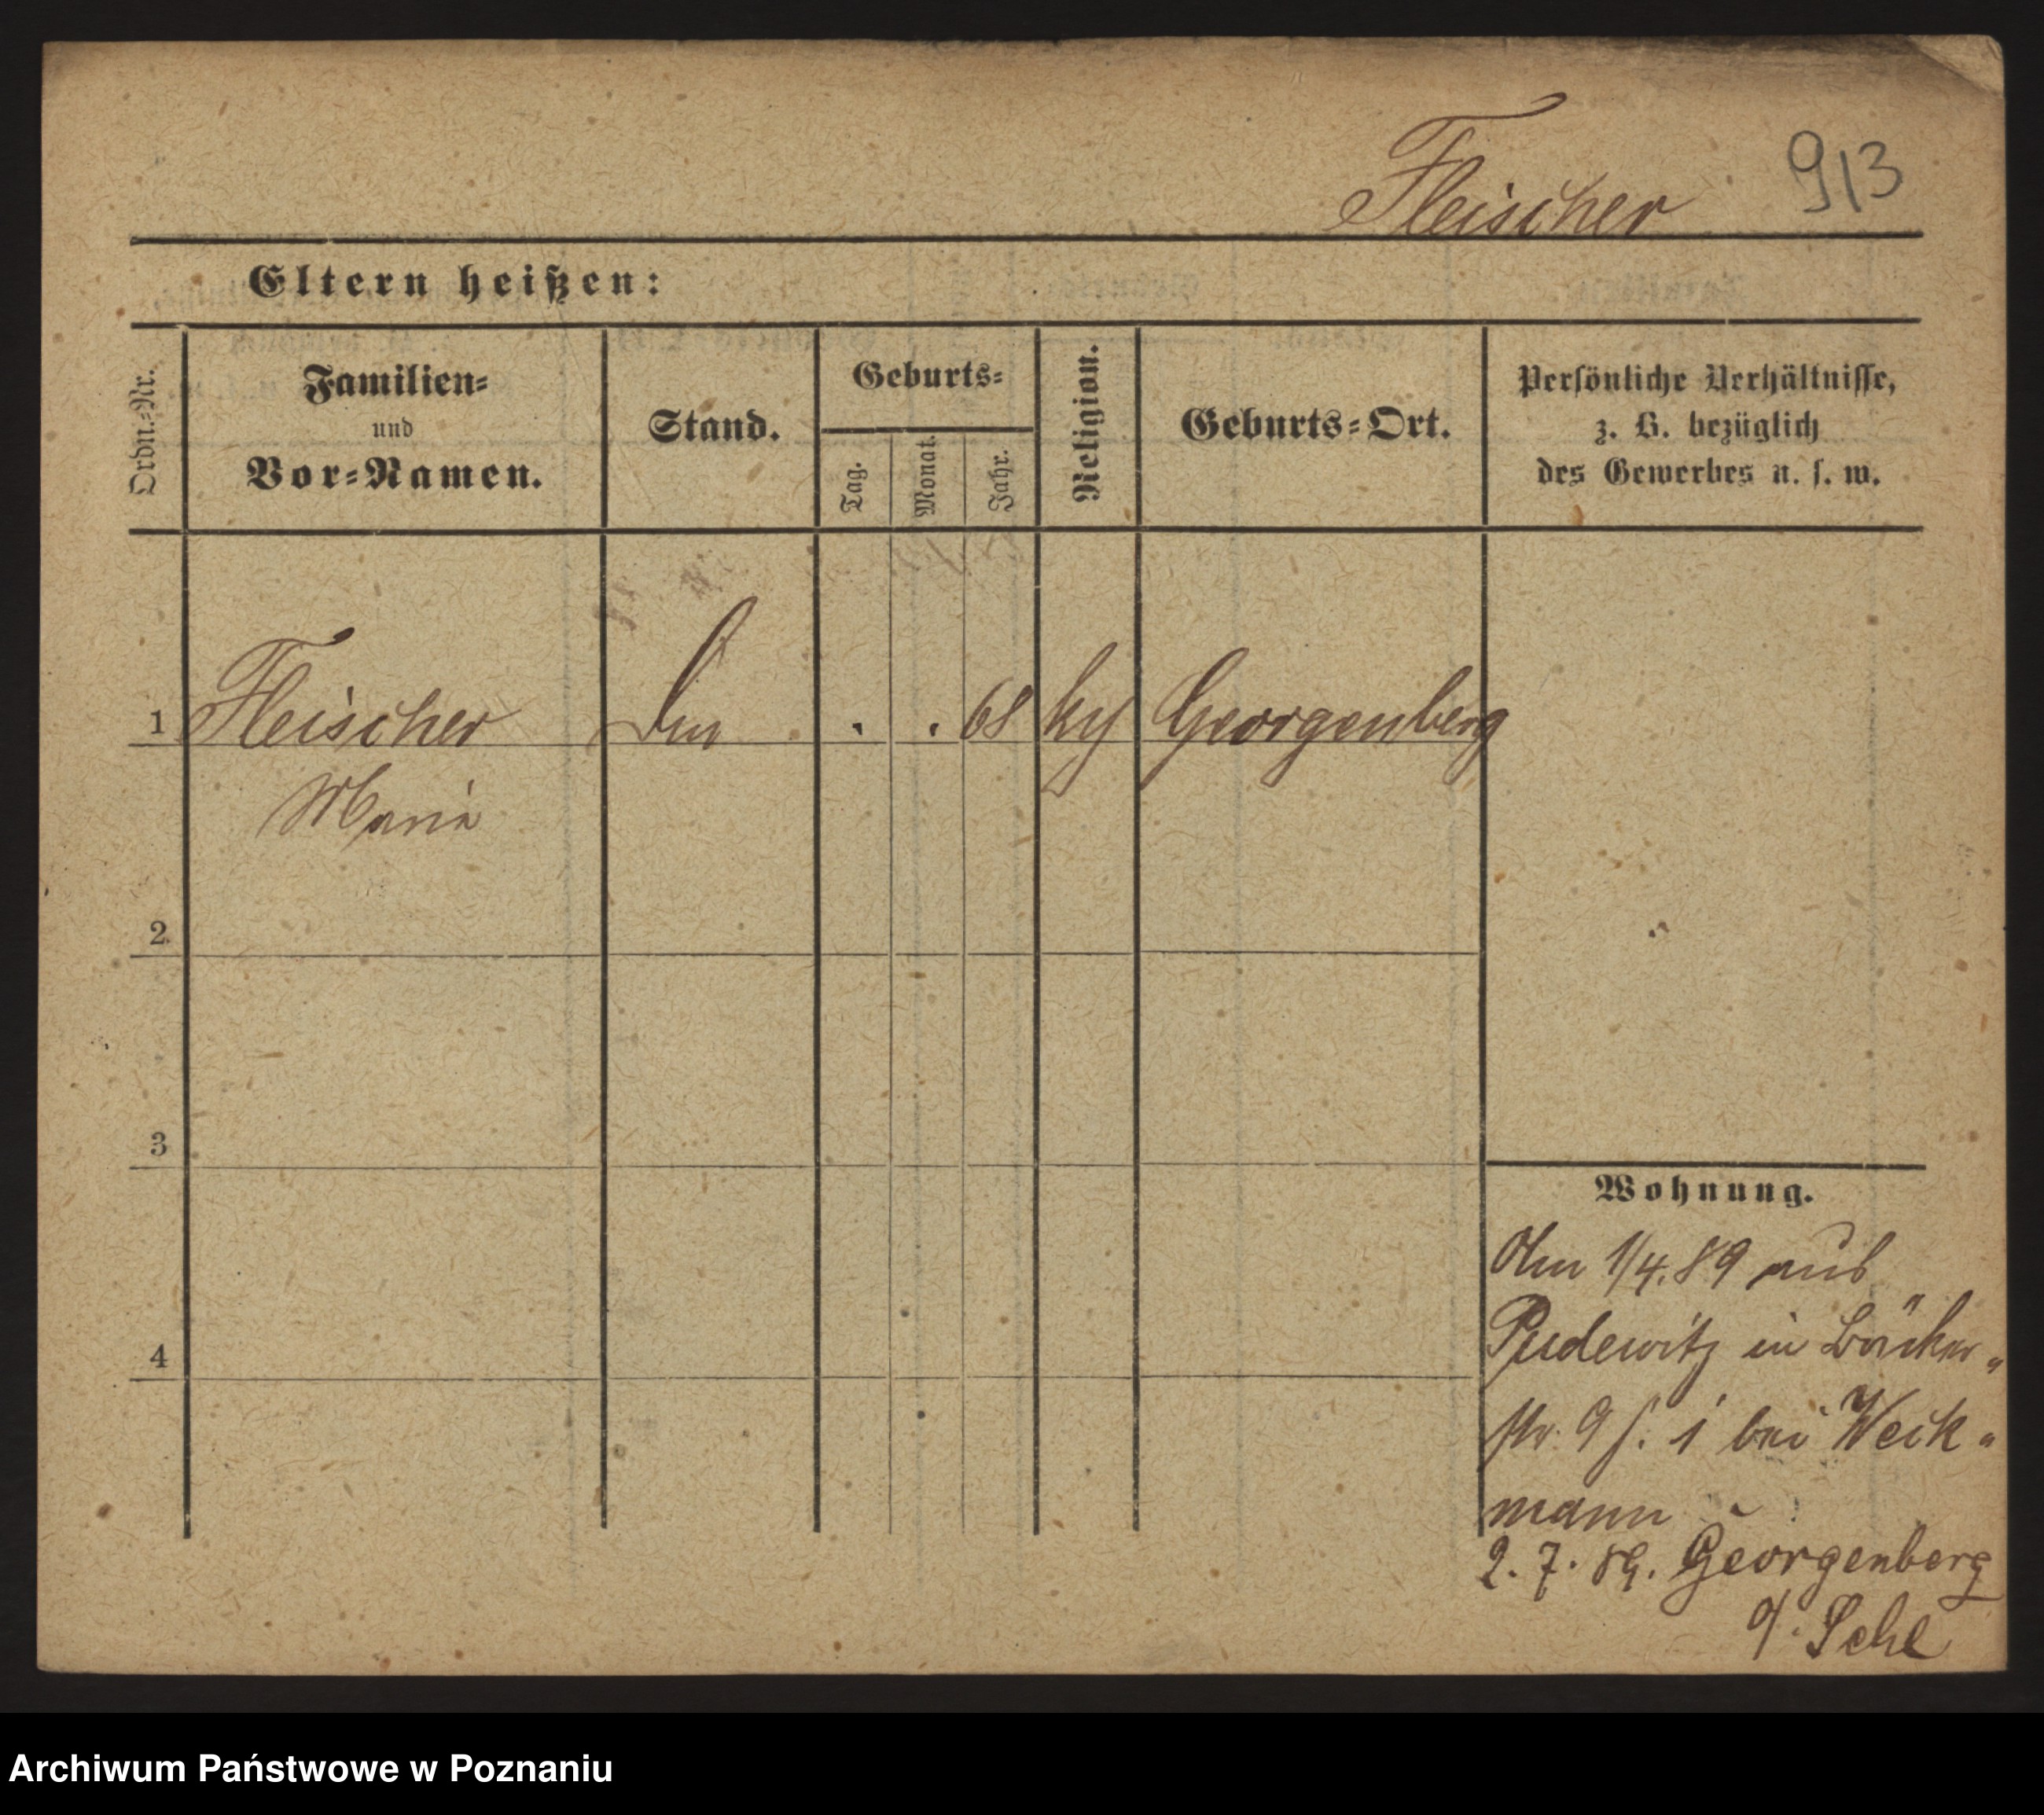 Fleischer 913
Eltern heißen:
Ordn.-Nr.
Familien-
und
Vor-Namen.
Stand.
Geburts-
Tag.
Monat.
Jahr.
Religion.
Geburts-Ort.
Persönliche Verhältnisse,
z. B. bezüglich
des Gewerbes u. s. w.
1 Fleischer . . 68 Georgenberg
Marie
2
3
4
Wohnung.
Am 1/4. 89 aus
Pudewitz in Bäcker-
str. 9 1 bei Weck-
mann
2. 7. 89. Georgenberg
Archiwum Państwowe w Poznaniu